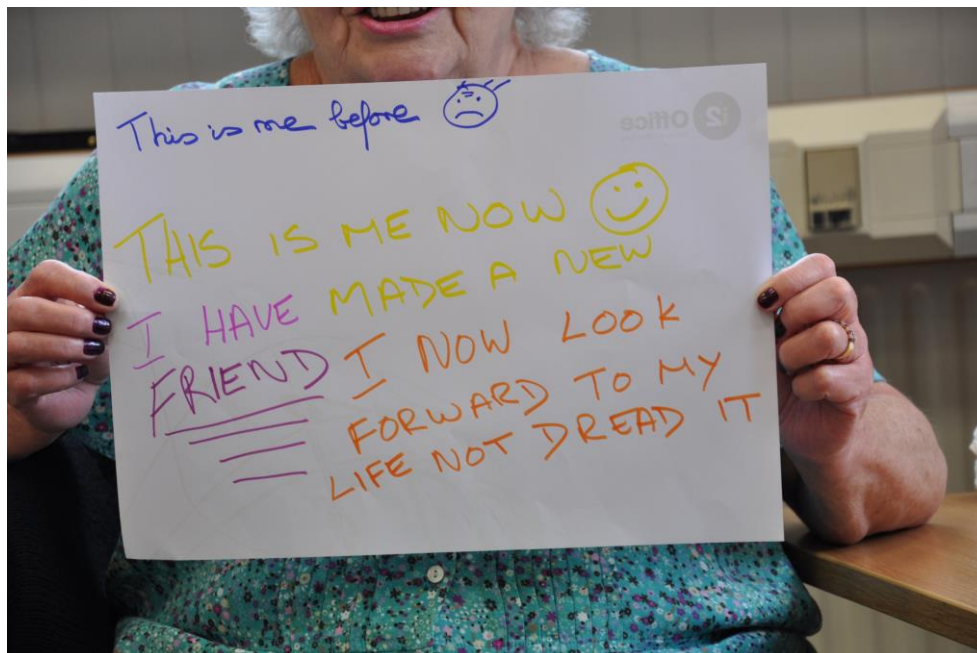 This is me before
i2 Office
THIS IS ME NOW
I HAVE MADE A NEW
FRIEND I NOW LOOK
FORWARD TO MY
LIFE NOT DREAD IT